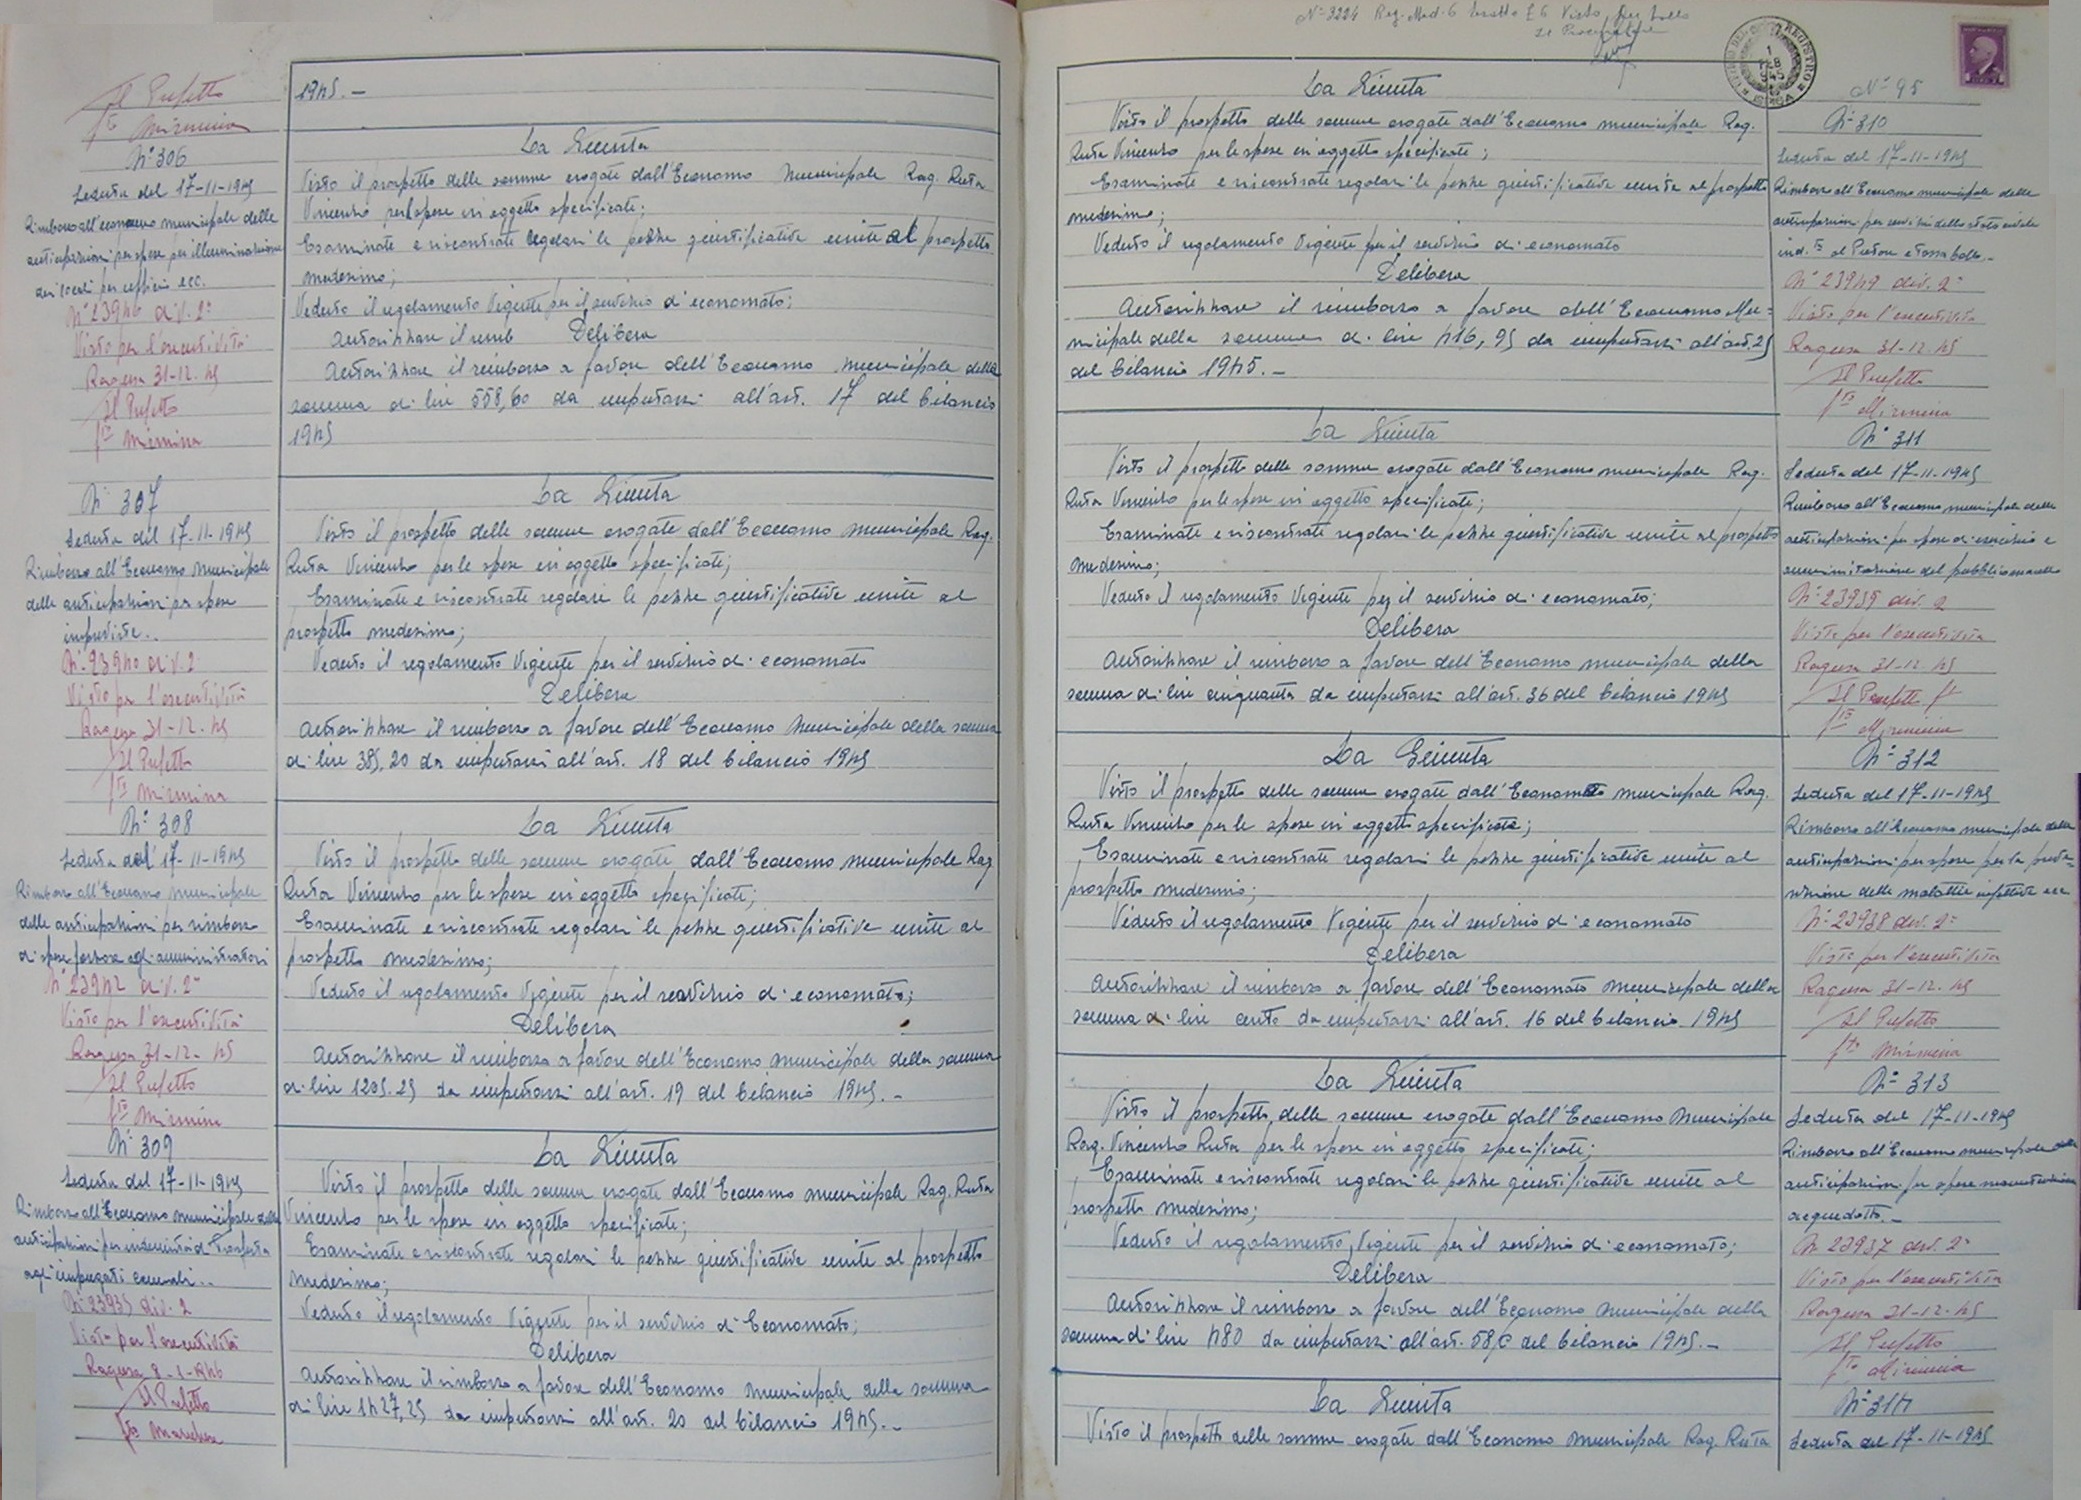 Il Prefetto
fto Mirmina
1945.-
N° 306
Seduta del 17-11-1945
Rimborso all'economo municipale delle
anticipazioni per spese per illuminazione
dei locali per ufficio ecc.
N° 23946 div. 2ª
Visto per l'esecutività
Ragusa 31-12-45
Il Prefetto
fto Mirmina
La Giunta
Visto il prospetto delle somme erogate dall'Economo Municipale Rag. Ruta
Vincenzo per le spese in oggetto specificate;
Esaminate e riscontrate regolari le pezze giustificative unite al prospetto
medesimo;
Veduto il regolamento vigente per il servizio di economato;
Autorizzare il rimb Delibera
Autorizzare il rimborso a favore dell'Economo Municipale della
somma di lire 558,60 da imputarsi all'art. 17 del bilancio
1945
N° 307
Seduta del 17-11-1945
Rimborso all'Economo Municipale
delle anticipazioni per spese
impreviste..
N° 23940 div. 2ª
Visto per l'esecutività
Ragusa 31-12-45
Il Prefetto
fto Mirmina
La Giunta
Visto il prospetto delle somme erogate dall'Economo Municipale Rag.
Ruta Vincenzo per le spese in oggetto specificate;
Esaminate e riscontrate regolari le pezze giustificative unite al
prospetto medesimo;
Veduto il regolamento vigente per il servizio di economato
Delibera
Autorizzare il rimborso a favore dell'Economo Municipale della somma
di lire 385,20 da imputarsi all'art. 18 del bilancio 1945
N° 308
Seduta del 17-11-1945
Rimborso all'Economo Municipale
delle anticipazioni per rimborso
di spese forzose agli amministratori
N° 23942 div. 2ª
Visto per l'esecutività
Ragusa 31-12-45
Il Prefetto
fto Mirmina
La Giunta
Visto il prospetto delle somme erogate dall'Economo Municipale Rag
Ruta Vincenzo per le spese in oggetto specificate;
Esaminate e riscontrate regolari le pezze giustificative unite al
prospetto medesimo;
Veduto il regolamento vigente per il servizio di economato;
Delibera
Autorizzare il rimborso a favore dell'Economo Municipale della somma
di lire 1205.25 da imputarsi all'art. 19 del bilancio 1945.-
N° 309
Seduta del 17-11-1945
Rimborso all'Economo Municipale delle
anticipazioni per indennità di trasferta
agli impiegati comunali..
N° 23935 div. 2
Visto per l'esecutività
Ragusa 8-1-1946
Il Prefetto
fto
La Giunta
Visto il prospetto delle somme erogate dall'Economo Municipale Rag. Ruta
Vincenzo per le spese in oggetto specificate;
Esaminate e riscontrate regolari le pezze giustificative unite al prospetto
medesimo;
Veduto il regolamento vigente per il servizio di Economato;
Delibera
Autorizzare il rimborso a favore dell'Economo Municipale della somma
di lire 1427,25 da imputarsi all'art. 20 del bilancio 1945.-
N° 3224 Reg. Mod. 6 Esatto £ 6 Visto per bollo
Il Procuratore
REGISTRO
1 FEB 945
N° 95
La Giunta
Visto il prospetto delle somme erogate dall'Economo municipale Rag.
Ruta Vincenzo per le spese in oggetto specificate;
Esaminate e riscontrate regolari le pezze giustificative unite al prospetto
medesimo;
Veduto il regolamento vigente per il servizio di economato
Delibera
Autorizzare il rimborso a favore dell'Economo Mu=
nicipale della somma di lire 416,95 da imputarsi all'art. 25
del bilancio 1945.-
N° 310
Seduta del 17-11-1945
Rimborso all'Economo municipale delle
anticipazioni per servizi dello stato civile
ind.tà al Pretore e tassa bollo.-
N° 23949 div. 2ª
Visto per l'esecutività
Ragusa 31-12-45
Il Prefetto
fto Mirmina
La Giunta
Visto il prospetto delle somme erogate dall'Economo municipale Rag.
Ruta Vincenzo per le spese in oggetto specificate;
Esaminate e riscontrate regolari le pezze giustificative unite al prospetto
medesimo;
Veduto il regolamento vigente per il servizio di economato;
Delibera
Autorizzare il rimborso a favore dell'Economo municipale della
somma di lire cinquanta da imputarsi all'art. 36 del bilancio 1945
N° 311
Seduta del 17-11-1945
Rimborso all'Economo municipale delle
anticipazioni per spese di esercizio e
amministrazione del pubblico macello
N° 23939 div. 2
Visto per l'esecutività
Ragusa 31-12-45
Il Prefetto ft
fto Mirmina
La Giunta
Visto il prospetto delle somme erogate dall'Economato municipale Rag.
Ruta Vincenzo per le spese in oggetto specificate;
Esaminate e riscontrate regolari le pezze giustificative unite al
prospetto medesimo;
Veduto il regolamento vigente per il servizio di economato
Delibera
Autorizzare il rimborso a favore dell'Economato municipale della
somma di lire cento da imputarsi all'art. 16 del bilancio 1945
N° 312
Seduta del 17-11-1945
Rimborso all'Economo municipale delle
anticipazioni per spese per la preve=
nzione delle malattie infettive ecc
N° 23938 div. 2ª
Visto per l'esecutività
Ragusa 31-12-45
Il Prefetto
fto Mirmina
La Giunta
Visto il prospetto delle somme erogate dall'Economo Municipale
Rag. Vincenzo Ruta per le spese in oggetto specificate;
Esaminate e riscontrate regolari le pezze giustificative unite al
prospetto medesimo;
Veduto il regolamento vigente per il servizio di economato;
Delibera
Autorizzare il rimborso a favore dell'Economo Municipale della
somma di lire 480 da imputarsi all'art. 58/c del bilancio 1945.-
N° 313
Seduta del 17-11-1945
Rimborso all'Economo municipale delle
anticipazioni per spese manutenzione
acquedotto.-
N 23937 div. 2ª
Visto per l'esecutività
Ragusa 31-12-45
Il Prefetto
fto Mirmina
La Giunta
Visto il prospetto delle somme erogate dall'Economo Municipale Rag. Ruta
N° 314
Seduta del 17-11-1945